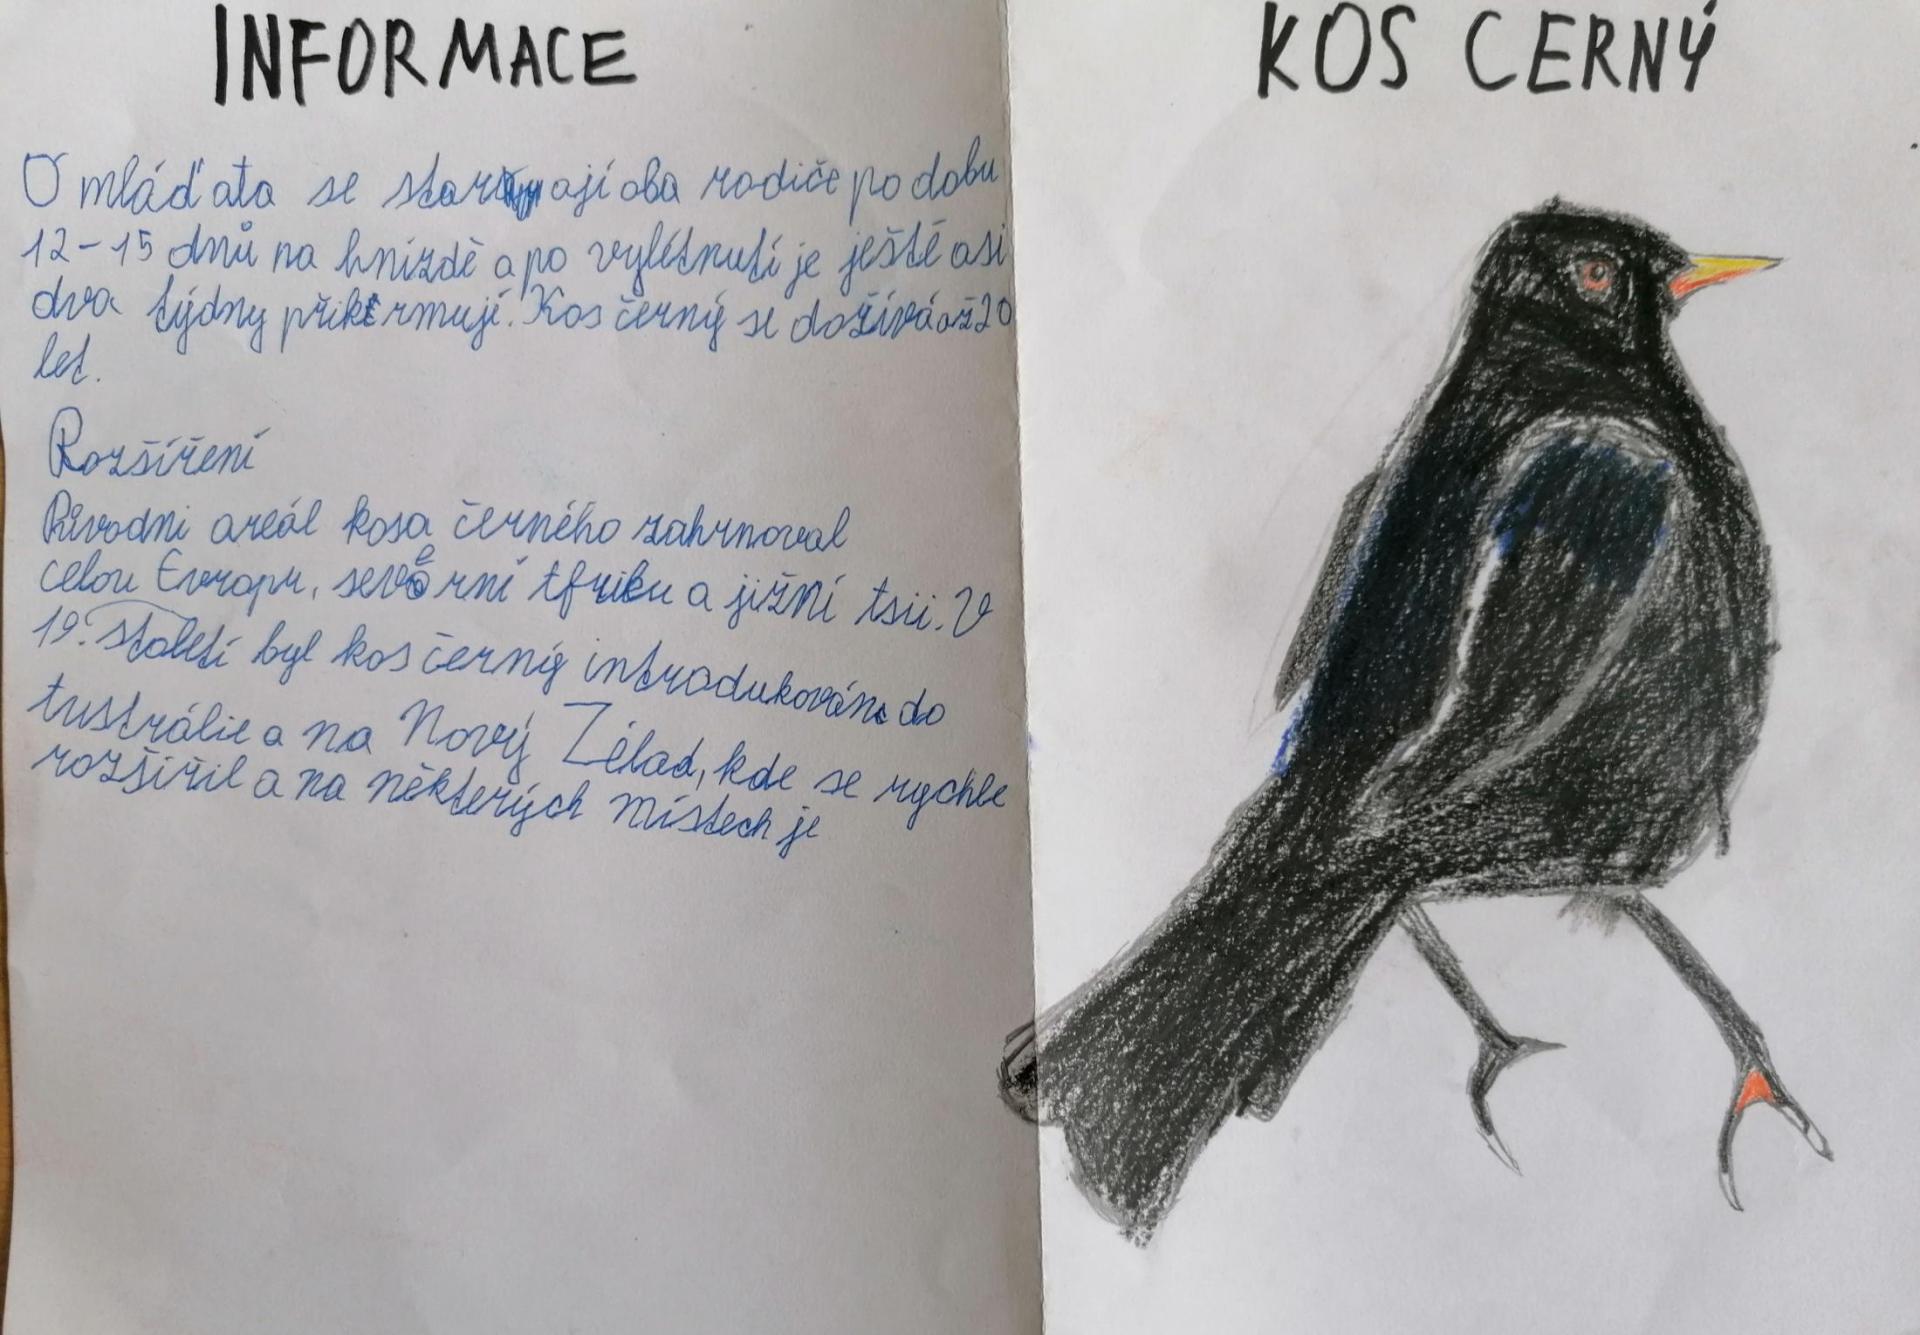 INFORMACE
O mláďata se starají oba rodiče po dobu
12-15 dnů na hnízdě a po vylétnutí je ještě asi
dva týdny přikrmují. Kos černý se dožívá až 20
let.
Rozšíření
Původni areál kosa černého zahrnoval
celou Evropu, severní Afriku a jižní Asii. V
19. století byl kos černý introdukován do
Austrálie a na Nový Zélad, kde se rychle
rozšířil a na některých místech je
KOS CERNÝ